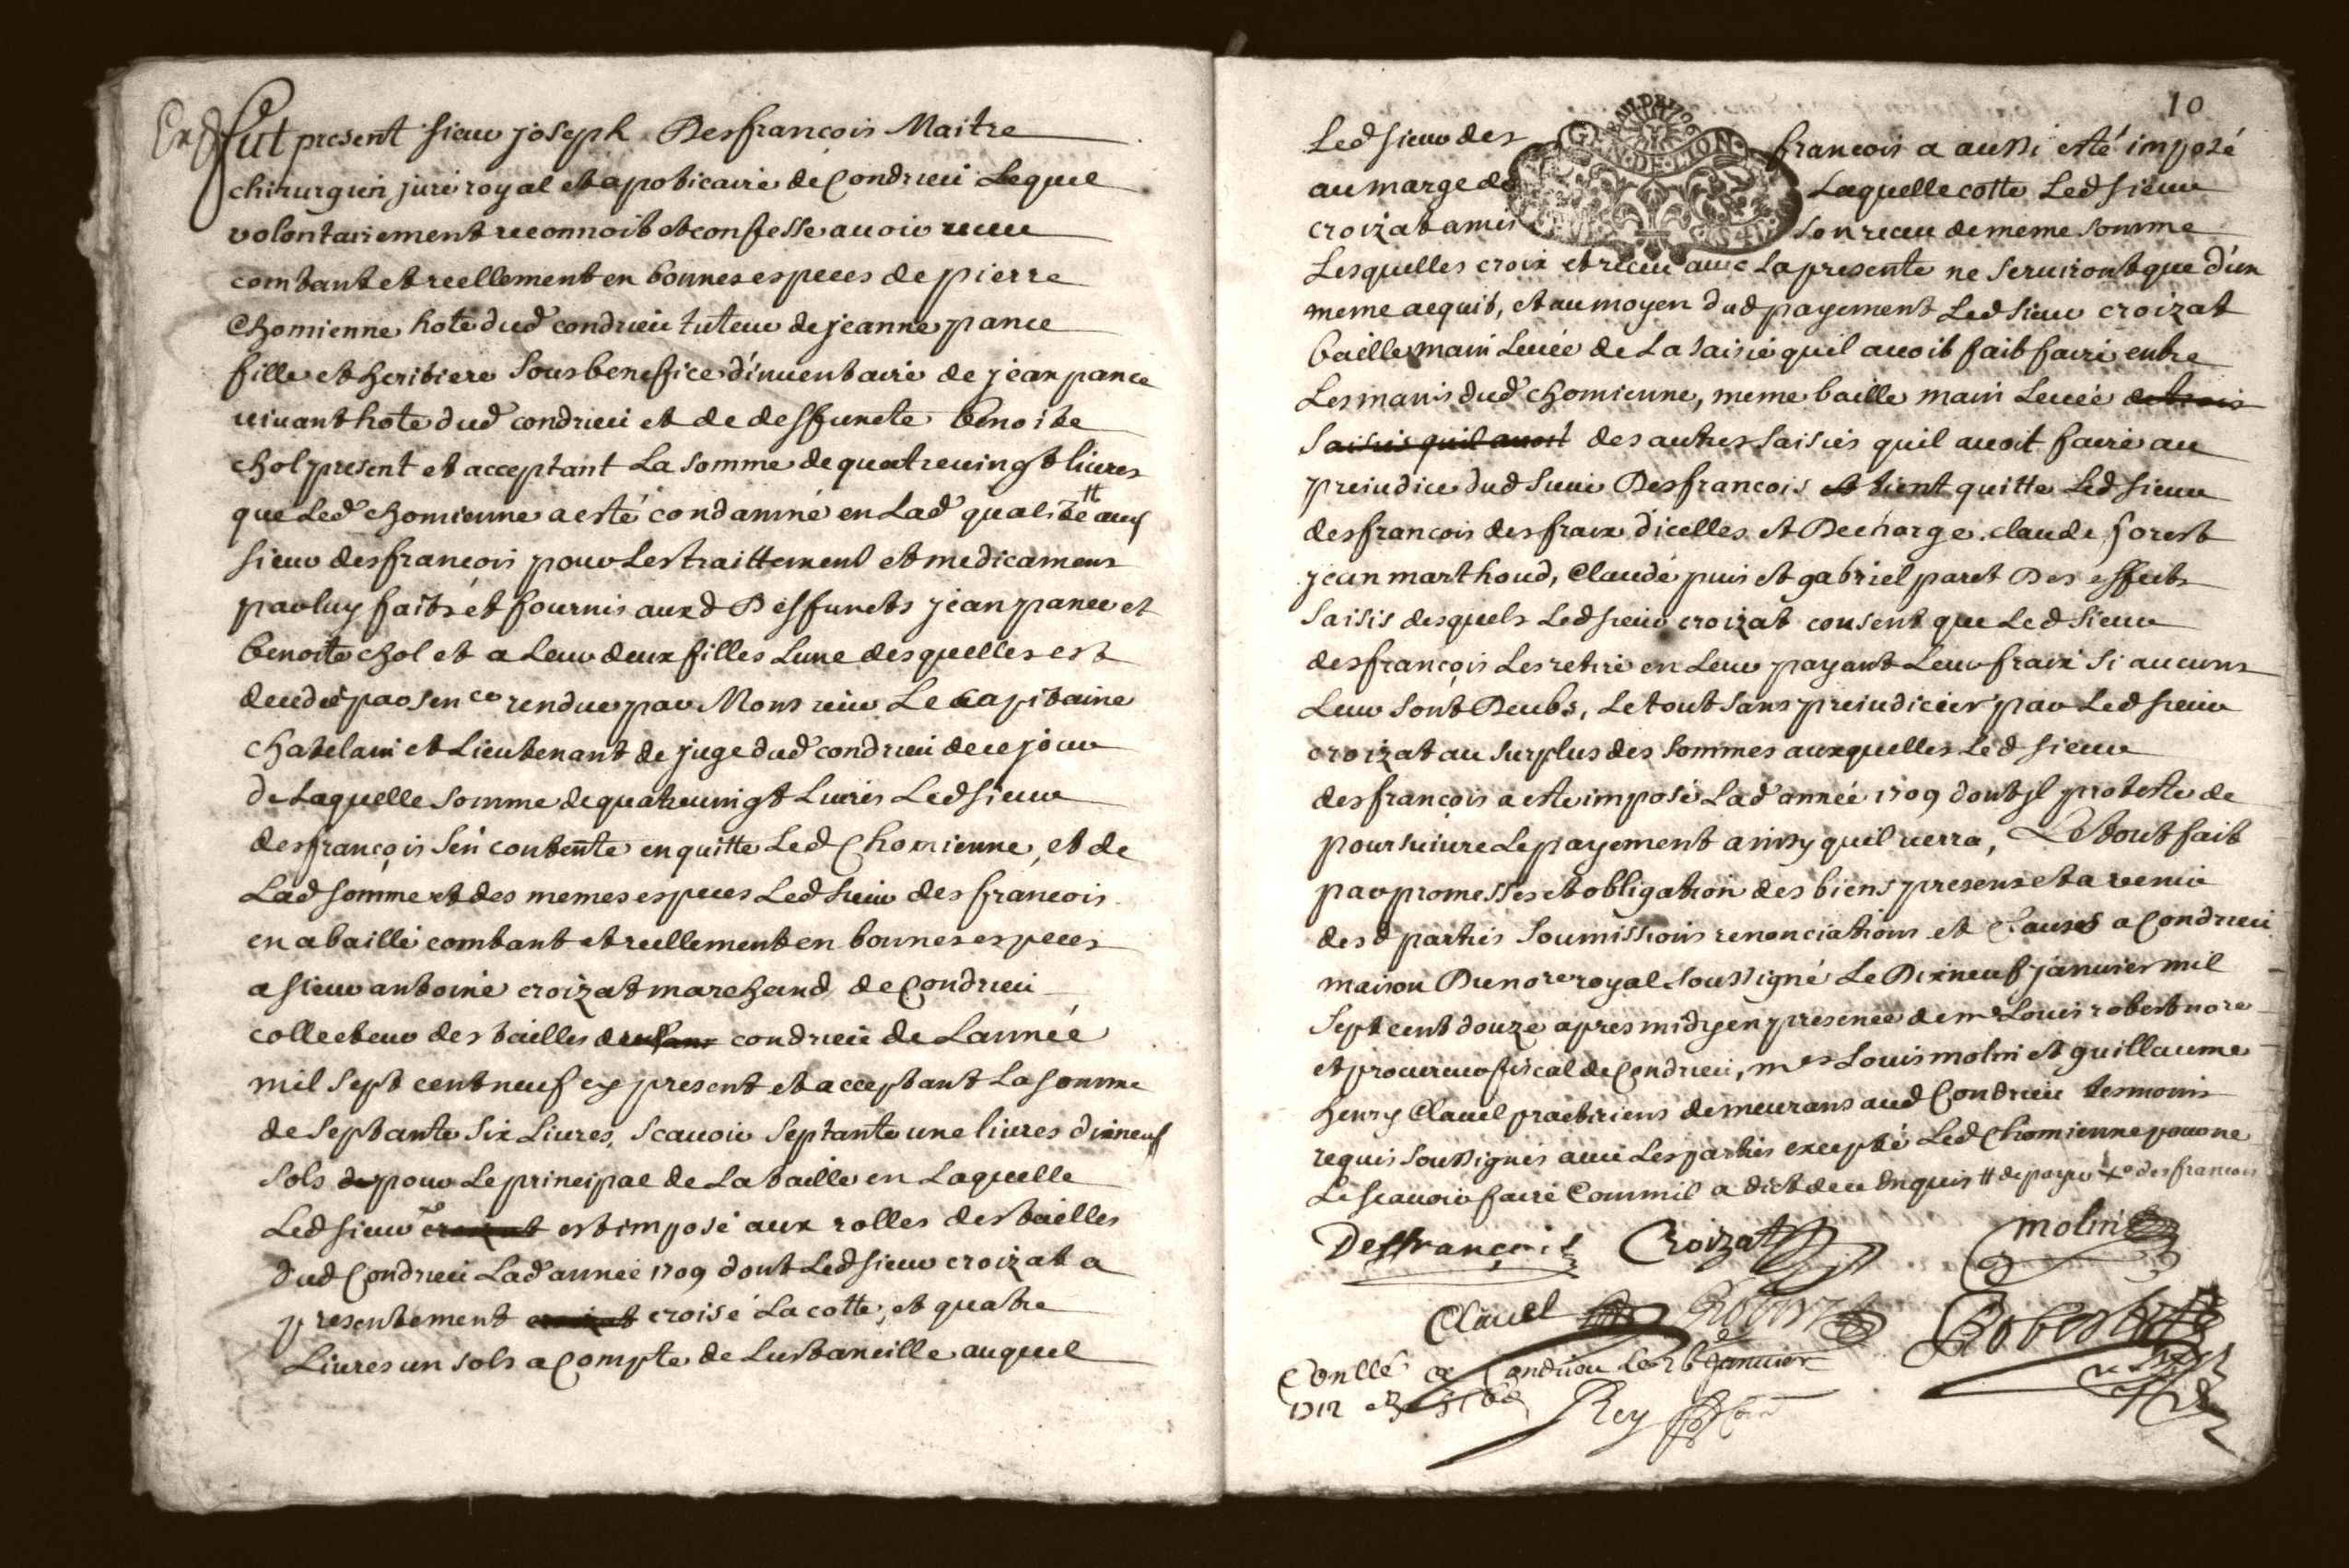 Exd Fut present sieur joseph Desfrançois Maitre
chirurgien juré royal et apoticaire de Condrieu Lequel
volontairement reconnoit et confesse avoir receu
contant et reellement en bonnes especes de pierre
Chomienne hote dud condrieu tuteur de jeanne pance
fille et heritiere sous benefice d'inventaire de jean pance
vivant hote dud condrieu et de deffuncte benoite
chol present et acceptant La somme de quatrevingt livres
que Led chomienne a esté condamné en Lad qualité aud
sieur desfrancois pour Les traittement et medicamens
par luy faits et fournis auxd Deffuncts jean pance et
benoite chol et a Leur deux filles Lune desquelles est
decedée par senco rendue par Monsieur Le capitaine
chatelain et Lieutenant de juge dud condrieu de ce jour
de Laquelle somme de quatrevingt Livres Led sieur
desfrançois s'en contente en quitte Led Chomienne, et de
Lad somme et des memes especes Led sieur desfrancois
en a baillé contant et reellement en bonnes especes
a sieur antoine croizat marchand de Condrieu
collecteur des tailles condrieu de Lannée
mil sept cent neuf cy present et acceptant La somme
de septante six Livres, scavoir septante une livres dixneuf
sols pour Le principal de La taille en Laquelle
Led sieur est imposé aux rolles des tailles
dud Condrieu Lad année 1709 dont Led sieur croizat a
presentement croisé La cotte, et quatre
Livres un sols a Compte de Lustancille auquel
10
GEN·DE·LION
Led sieur des francois a aussi esté imposé
au marge de Laquelle cotte Led sieur
croizat a mis son receu de meme somme
Lesquelles croix et receu avec La presente ne serviront que d'un
meme acquit, et au moyen dud payement Led sieur croizat
baille main Levée de La saisie quil avoit fait faire entre
Les mains dud chomienne, meme baille main Levée de trois
saisies quil avoit des autres saisies quil avoit faire au
preiudice dud sieur Desfrancois et tient quitte Led sieur
desfrancois des fraix d'icelles et Decharge claude forest
jean marthoud, Claude puis et gabriel paret Des effects
saisis desquels Led sieur croizat consent que Led sieur
desfrançois Les retire en Leur payant Leur fraix si aucuns
Leur sont Deubs, Le tout sans preiudicier par Led sieur
croizat au surplus des sommes auxquelles Led sieur
desfrançois a esté imposé Lad année 1709 dont jl proteste de
poursuivre Le payement ainsy quil verra, Le tout fait
par promesses et obligation des biens presens et a venir
desd parties soumissions renonciations et Clauses a Condrieu
maison Du nore royal soussigné Le Dixneuf janvier mil
sept cent douze apres midy en presence de me Louis robert nore
et procureur fiscal de Condrieu, mes Louis molin et guillaume
henry Clavel practiciens demeurans aud Condrieu tesmoins
requis soussignés avec Les parties excepté Led Chomienne pour ne
Le scavoir faire Comm'il a dict de ce enquis desfrancois
Desfrançois Croizat molin
Clavel Robert Robert
Conllé a Condrieu Le 26 janvier
1712
Rey